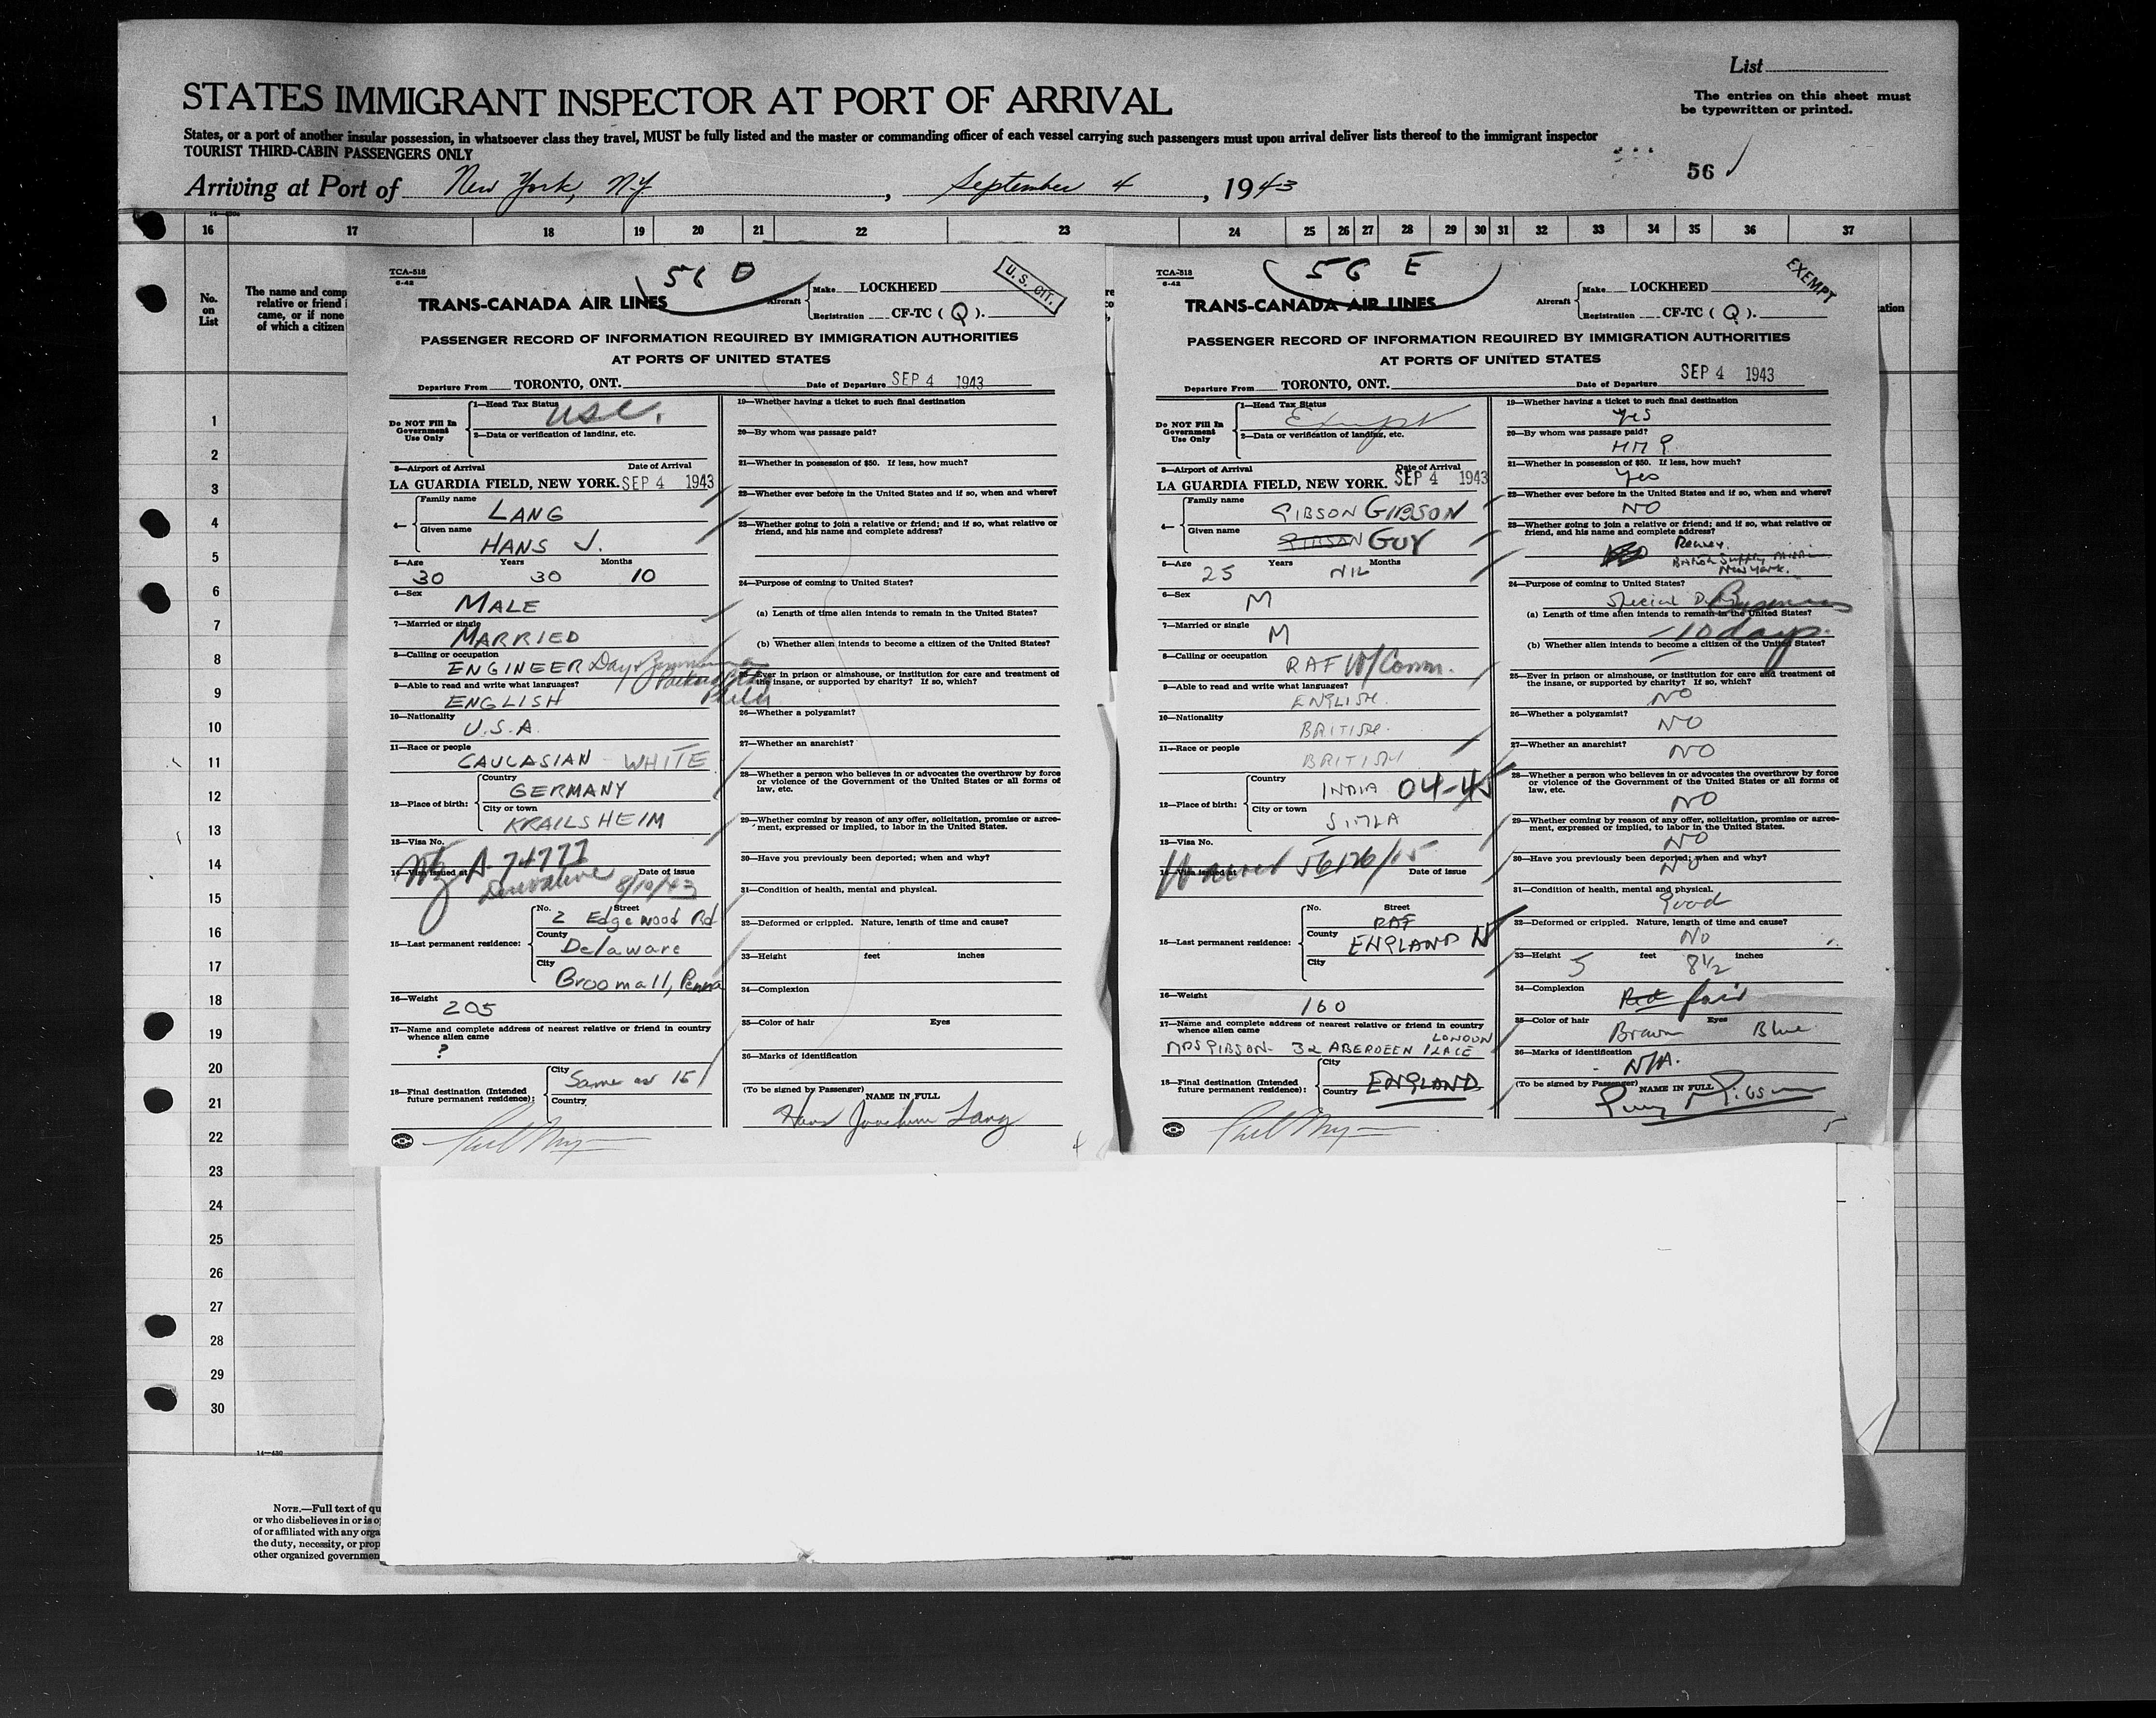 List
The entries on this sheet must
be typewritten or printed.
STATES IMMIGRANT INSPECTOR AT PORT OF ARRIVAL
States, or a port of another insular possession, in whatsoever class they travel, MUST be fully listed and the master or commanding officer of each vessel carrying such passengers must upon arrival deliver lists thereof to the immigrant inspector
TOURIST THIRD-CABIN PASSENGERS ONLY
56
Arriving at Port of New York, N.Y. , September 4 , 1943
16 17 18 19 20 21 22 23 24 25 26 27 28 29 30 31 32 33 34 35 36 37
No.
on
List
The name and comp
relative or friend i
came, or if none
of which a citizen
1
2
3
4
5
6
7
8
9
10
11
12
13
14
15
16
17
18
19
20
21
22
23
24
25
26
27
28
29
30
14-430
NOTE.—Full text of qu
or who disbelieves in or is o
of or affiliated with any orga
the duty, necessity, or prop
other organized governmen
TCA-518
6-42
56 D
U.S. CIT.
TRANS-CANADA AIR LINES
Aircraft
Make LOCKHEED
Registration CF-TC ( Q ).
PASSENGER RECORD OF INFORMATION REQUIRED BY IMMIGRATION AUTHORITIES
AT PORTS OF UNITED STATES
Departure From TORONTO, ONT. Date of Departure SEP 4 1943
Do NOT Fill In
Government
Use Only
1—Head Tax Status USC.
2—Data or verification of landing, etc.
3—Airport of Arrival Date of Arrival
LA GUARDIA FIELD, NEW YORK. SEP 4 1943
4—
Family name
LANG
Given name
HANS J.
5—Age Years Months
30 30 10
6—Sex
MALE
7—Married or single
MARRIED
8—Calling or occupation
ENGINEER Day &
9—Able to read and write what languages?
ENGLISH
10—Nationality
U.S.A.
11—Race or people
CAUCASIAN - WHITE
12—Place of birth:
Country
GERMANY
City or town
KRAILSHEIM
13—Visa No.
A 74777
14—Visa issued at Date of issue
Derivative 8/10/43
15—Last permanent residence:
No. Street
2 Edgewood Rd
County
Delaware
City
Broomall, Penna
16—Weight
205
17—Name and complete address of nearest relative or friend in country
whence alien came
?
18—Final destination (Intended
future permanent residence):
City
Same as 15
Country
19—Whether having a ticket to such final destination
20—By whom was passage paid?
21—Whether in possession of $50. If less, how much?
22—Whether ever before in the United States and if so, when and where?
23—Whether going to join a relative or friend; and if so, what relative or
friend, and his name and complete address?
24—Purpose of coming to United States?
(a) Length of time alien intends to remain in the United States?
(b) Whether alien intends to become a citizen of the United States?
25—Ever in prison or almshouse, or institution for care and treatment of
the insane, or supported by charity? If so, which?
26—Whether a polygamist?
27—Whether an anarchist?
28—Whether a person who believes in or advocates the overthrow by force
or violence of the Government of the United States or all forms of
law, etc.
29—Whether coming by reason of any offer, solicitation, promise or agree-
ment, expressed or implied, to labor in the United States.
30—Have you previously been deported; when and why?
31—Condition of health, mental and physical.
32—Deformed or crippled. Nature, length of time and cause?
33—Height feet inches
34—Complexion
35—Color of hair Eyes
36—Marks of identification
(To be signed by Passenger) NAME IN FULL
Hans Joachim Lang
TCA-518
6-42
56 E
EXEMPT
TRANS-CANADA AIR LINES
Aircraft
Make LOCKHEED
Registration CF-TC ( Q ).
PASSENGER RECORD OF INFORMATION REQUIRED BY IMMIGRATION AUTHORITIES
AT PORTS OF UNITED STATES
Departure From TORONTO, ONT. Date of Departure SEP 4 1943
Do NOT Fill In
Government
Use Only
1—Head Tax Status
Exempt
2—Data or verification of landing, etc.
3—Airport of Arrival Date of Arrival
LA GUARDIA FIELD, NEW YORK. SEP 4 1943
4—
Family name
GIBSON GIBSON
Given name
GIBSON GUY
5—Age Years Months
25 NIL
6—Sex
M
7—Married or single
M
8—Calling or occupation
RAF W/Comm.
9—Able to read and write what languages?
ENGLISH.
10—Nationality
BRITISH.
11—Race or people
BRITISH
12—Place of birth:
Country
INDIA 04-45
City or town
SIMLA
13—Visa No.
Waived
14—Visa issued at Date of issue
15—Last permanent residence:
No. Street
RAF
County
ENGLAND
City
16—Weight
160
17—Name and complete address of nearest relative or friend in country
whence alien came
MRS GIBSON- 32 ABERDEEN PLACE LONDON
18—Final destination (Intended
future permanent residence):
City
Country ENGLAND
19—Whether having a ticket to such final destination
Yes
20—By whom was passage paid?
21—Whether in possession of $50. If less, how much?
Yes
22—Whether ever before in the United States and if so, when and where?
NO
23—Whether going to join a relative or friend; and if so, what relative or
friend, and his name and complete address?
British Supply
New York.
24—Purpose of coming to United States?
Special Business
(a) Length of time alien intends to remain in the United States?
10 days.
(b) Whether alien intends to become a citizen of the United States?
25—Ever in prison or almshouse, or institution for care and treatment of
the insane, or supported by charity? If so, which?
NO
26—Whether a polygamist?
NO
27—Whether an anarchist?
NO
28—Whether a person who believes in or advocates the overthrow by force
or violence of the Government of the United States or all forms of
law, etc.
NO
29—Whether coming by reason of any offer, solicitation, promise or agree-
ment, expressed or implied, to labor in the United States.
NO
30—Have you previously been deported; when and why?
NO
31—Condition of health, mental and physical.
Good
32—Deformed or crippled. Nature, length of time and cause?
No
33—Height 5 feet 8 1/2 inches
34—Complexion
Red fair
35—Color of hair Eyes
Brown Blue
36—Marks of identification
N/A.
(To be signed by Passenger) NAME IN FULL
Guy Gibson
ation